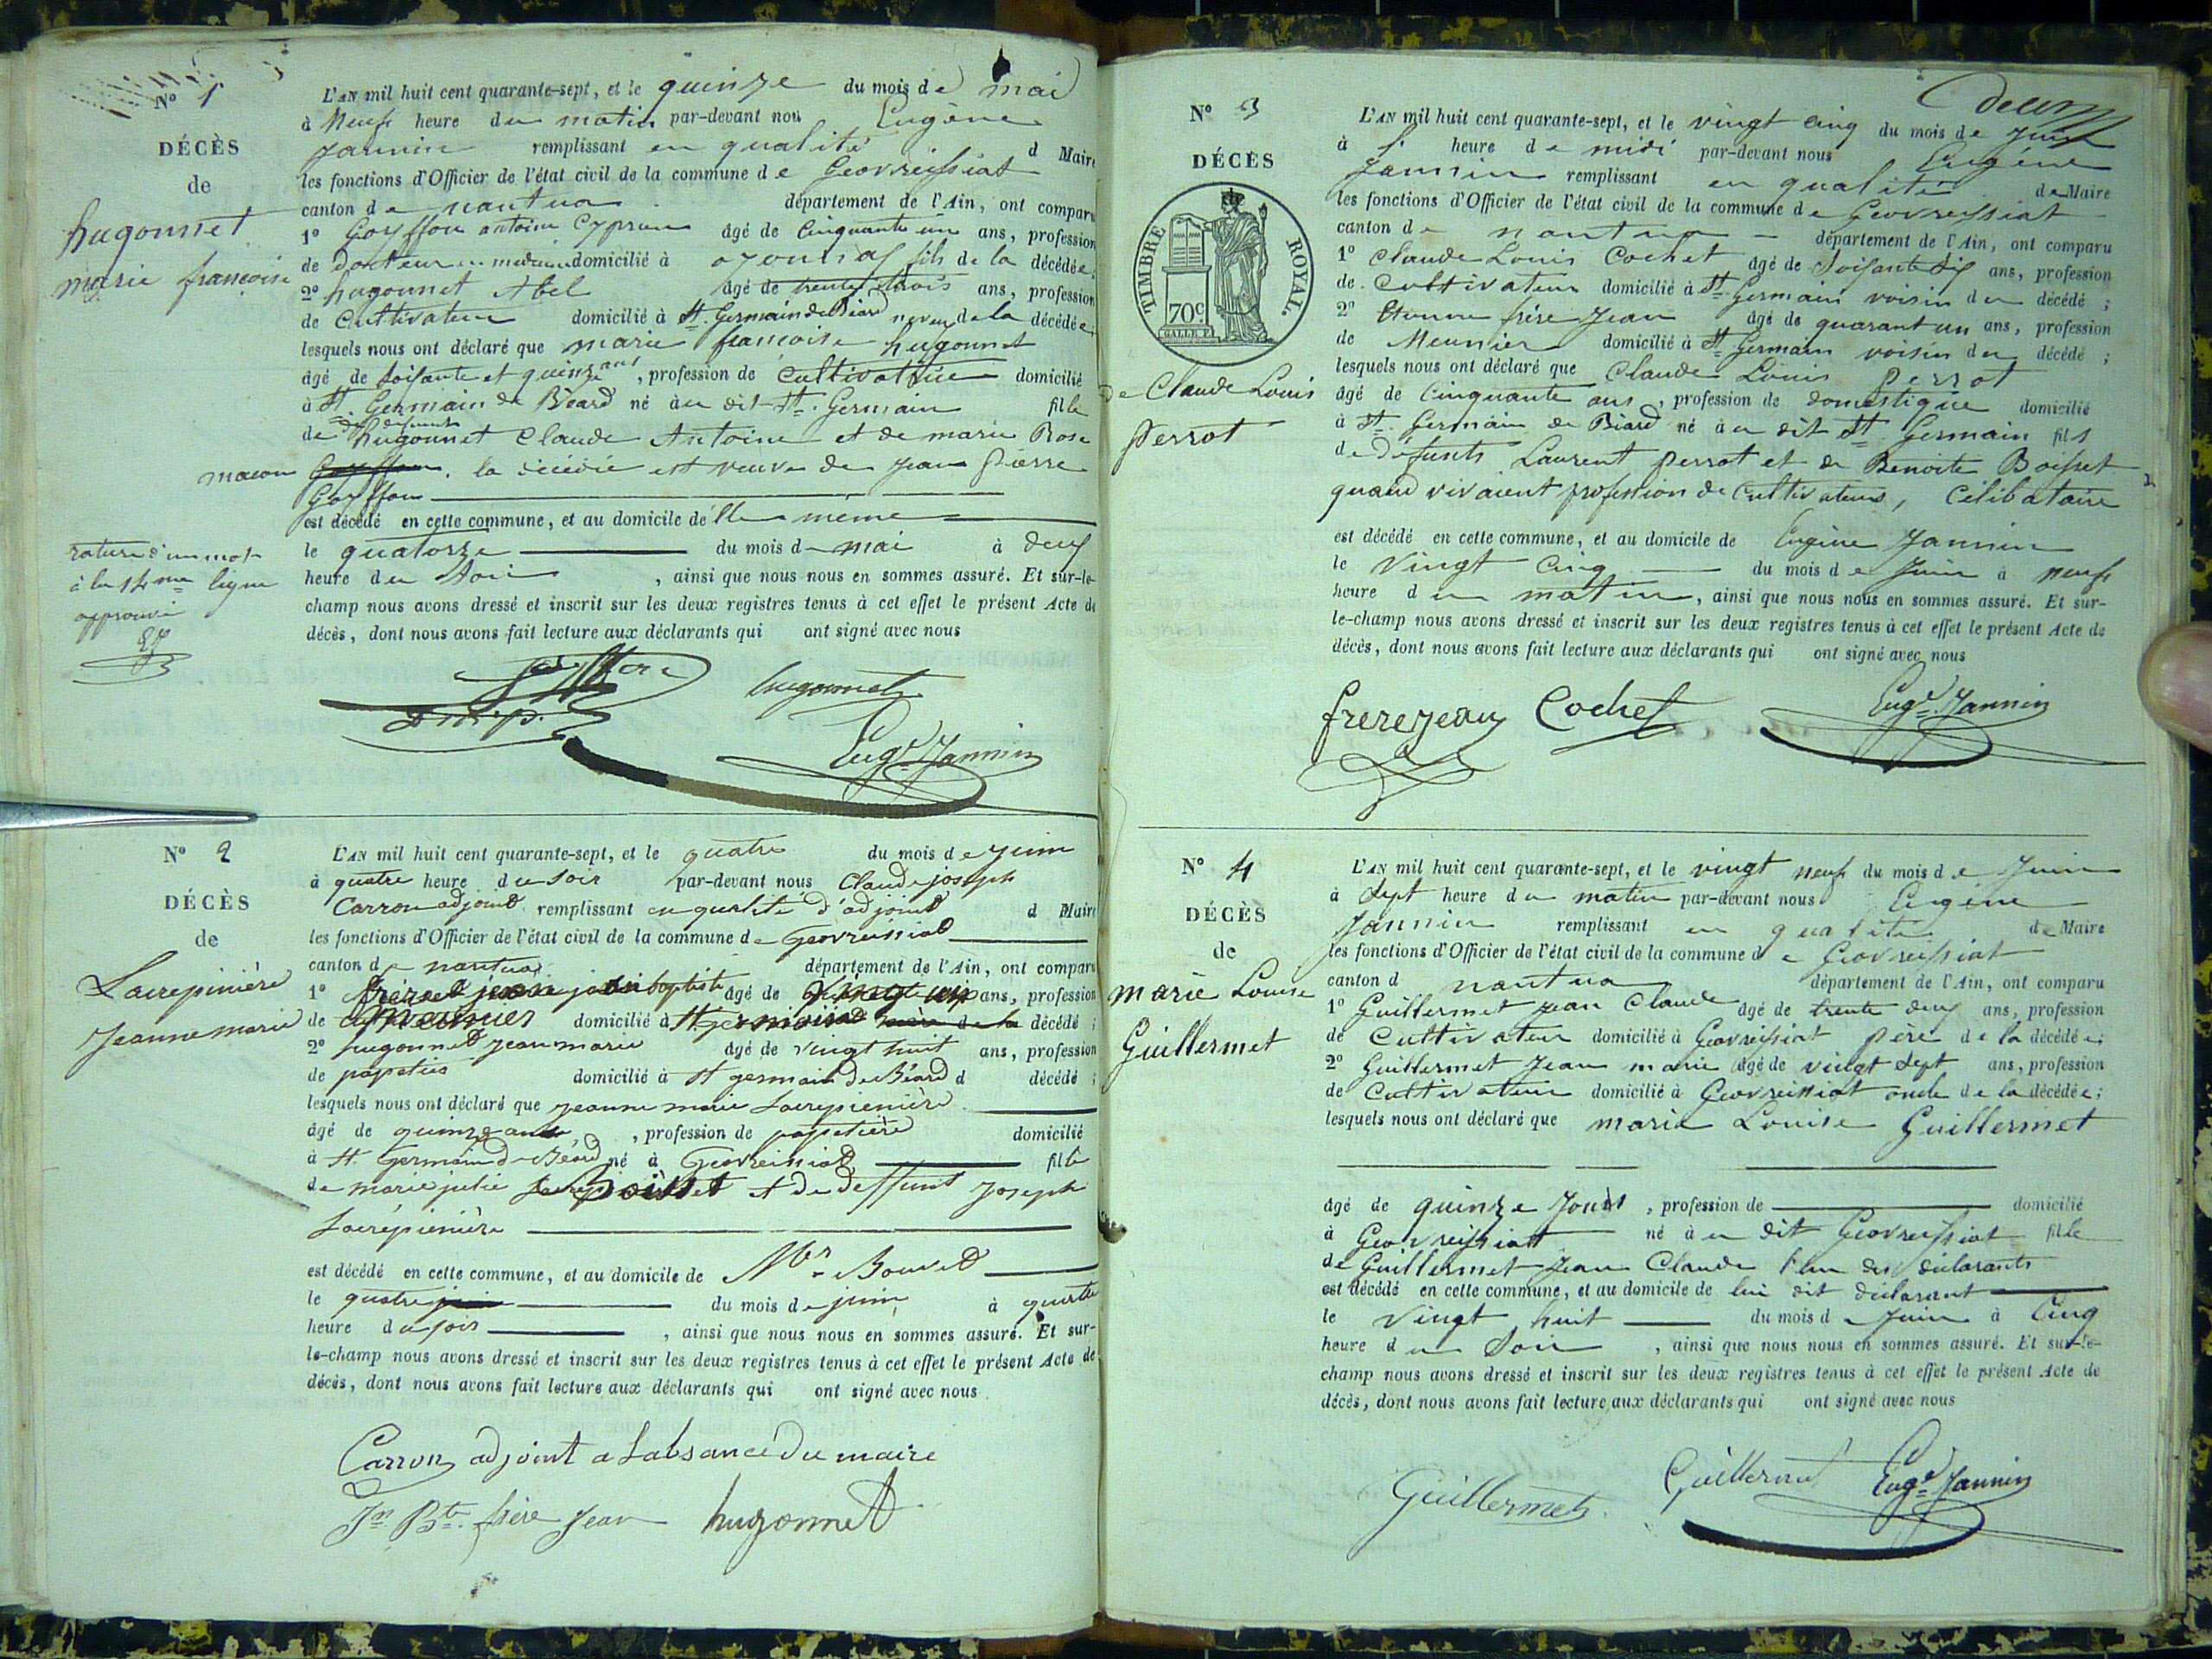 N° 1
DÉCÈS
de
hugonnet
marie françoise
L'AN mil huit cent quarante-sept, et le quinze du mois de mai
à Neuf heure du matin par-devant nou Eugène
Jannin remplissant en qualité d Maire
les fonctions d'Officier de l'état civil de la commune de Geovreissiat
canton de nantua département de l'Ain, ont comparu
1° Goyffon antoine Cyprien agé de Cinquante un ans, profession
de docteur en medecine domicilié à oyonnax fils de la décédée,
2° hugonnet Abel âgé de trente trois ans, profession
de Cultivateur domicilié à St. Germain de Béard neveu de la décédée,
lesquels nous ont déclaré que marie françoise hugonnet
âgé de soisante et quinze ans, profession de Cultivatrice domicilié
à St. Germain de Béard né àu dit St. Germain fille
de defunts hugonnet Claude Antoine et de marie Rose
macon Goyffon. la décédée est veuve de Jean Pierre
Goyffon
est décédé en cette commune, et au domicile d'elle même
le quatorze du mois de mai à deux
heure du soir, ainsi que nous nous en sommes assuré. Et sur-le-
champ nous avons dressé et inscrit sur les deux registres tenus à cet effet le présent Acte de
décès, dont nous avons fait lecture aux déclarants qui ont signé avec nous
rature d'un mot
à la 14me ligne
approuvé
Goyffon hugonnet
Eugne Jannin
N° 2
DÉCÈS
de
Lacrepinière
Jeanne marie
L'AN mil huit cent quarante-sept, et le quatre du mois de juin
à quatre heure du soir par-devant nous Claude joseph
Carron adjoint remplissant en qualité d'adjoint d Maire
les fonctions d'Officier de l'état civil de la commune de Geovreissiat
canton de nantua département de l'Ain, ont comparu
1° frère jean jean baptiste agé de vingt ans, profession
de Meunier domicilié à St germain décédé ;
2° hugonnet jean marie âgé de vingt huit ans, profession
de papetier domicilié à St germain de Béard d décédé ;
lesquels nous ont déclaré que jeanne marie Lacrepienière
âgé de quinze ans, profession de papetière domicilié
à St. Germain de Béard né à Geovreissiat fille
de marie julie Boisset et de deffunt joseph
Lacrépienière
est décédé en cette commune, et au domicile de Mr Bouvet
le quatre du mois de juin à quatre
heure du soir, ainsi que nous nous en sommes assuré. Et sur-
le-champ nous avons dressé et inscrit sur les deux registres tenus à cet effet le présent Acte de
décès, dont nous avons fait lecture aux déclarants qui ont signé avec nous
Carron adjoint a Labsance du maire
Jn Bte frère Jean hugonnet
deux
N° 3
DÉCÈS
TIMBRE ROYAL.
70c
de Claude Louis
Perrot
L'AN mil huit cent quarante-sept, et le vingt cinq du mois de juin
à heure de midi par-devant nous Eugène
Jannin remplissant en qualité de Maire
les fonctions d'Officier de l'état civil de la commune de Geovreissiat
canton de nantua département de l'Ain, ont comparu
1° Claude Louis Cochet agé de soisante dix ans, profession
de Cultivateur domicilié à St Germain voisin du décédé ;
2° Etienne frère Jean âgé de quarant un ans, profession
de Meunier domicilié à St Germain voisin du décédé ;
lesquels nous ont déclaré que Claude Louis Perrot
âgé de cinquante ans, profession de domestique domicilié
à St. Germain de Béard né àu dit St Germain fils
de défunts Laurent Perrot et de Benoite Boisset
quand vivaient profession de Cultivateurs, Célibataire
est décédé en cette commune, et au domicile de Eugène Jannin
le Vingt Cinq du mois de Juin à neuf
heure du matin, ainsi que nous nous en sommes assuré. Et sur-
le-champ nous avons dressé et inscrit sur les deux registres tenus à cet effet le présent Acte de
décès, dont nous avons fait lecture aux déclarants qui ont signé avec nous
frerejean Cochet Eugne Jannin
N° 4
DÉCÈS
de
marie Louise
Guillermet
L'AN mil huit cent quarante-sept, et le vingt neuf du mois de Juin
à sept heure du matin par-devant nous Eugène
Jannin remplissant en qualité de Maire
les fonctions d'Officier de l'état civil de la commune de Geovreissiat
canton d nantua département de l'Ain, ont comparu
1° Guillermet Jean Claude agé de trente deux ans, profession
de Cultivateur domicilié à Geovreissiat père de la décédée ;
2° Guillermet Jean marie âgé de vingt sept ans, profession
de Cultivateur domicilié à Geovreissiat oncle de la décédée ;
lesquels nous ont déclaré que marie Louise Guillermet
âgé de quinze jours, profession de domicilié
à Geovreissiat né àu dit Geovreissiat fille
de Guillermet Jean Claude l'un des déclarants
est décédé en cette commune, et au domicile de lui dit déclarant
le Vingt huit du mois de Juin à Cinq
heure du soir, ainsi que nous nous en sommes assuré. Et sur-le-
champ nous avons dressé et inscrit sur les deux registres tenus à cet effet le présent Acte de
décès, dont nous avons fait lecture aux déclarants qui ont signé avec nous
Guillermet Guillermet Eugne Jannin